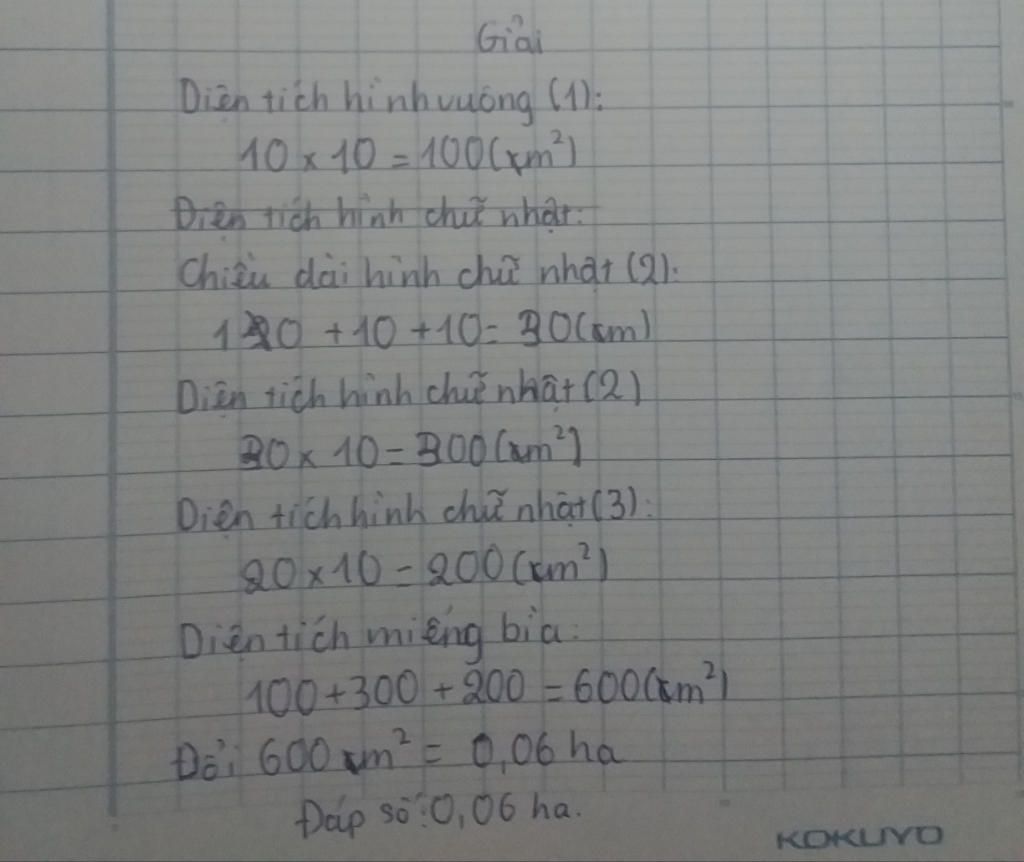 Giải
Diện tích hình vuông (1):
10 x 10 = 100 (m²)
Diện tích hình chữ nhật:
Chiều dài hình chữ nhật (2):
10 + 10 + 10 = 30 (m)
Diện tích hình chữ nhật (2)
30 x 10 = 300 (m²)
Diện tích hình chữ nhật (3):
20 x 10 = 200 (m²)
Diện tích miếng bìa:
100 + 300 + 200 = 600 (m²)
Đổi 600 m² = 0,06 ha
Đáp số: 0,06 ha.
KOKUYO